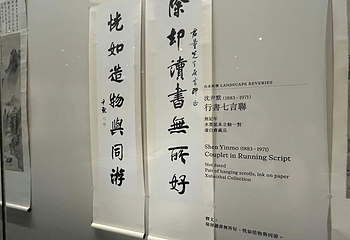 除却讀書無所好
恍如造物與同游
尹默
LANDSCAPE REVERIES
沈尹默 (1883–1971)
行書七言聯
無紀年
水墨紙本立軸一對
虛白齋藏品
Shen Yinmo (1883–1971)
Couplet in Running Script
Not dated
Pair of hanging scrolls, ink on paper
Xubaizhai Collection
釋文:
除却讀書無所好,恍如造物與同游。